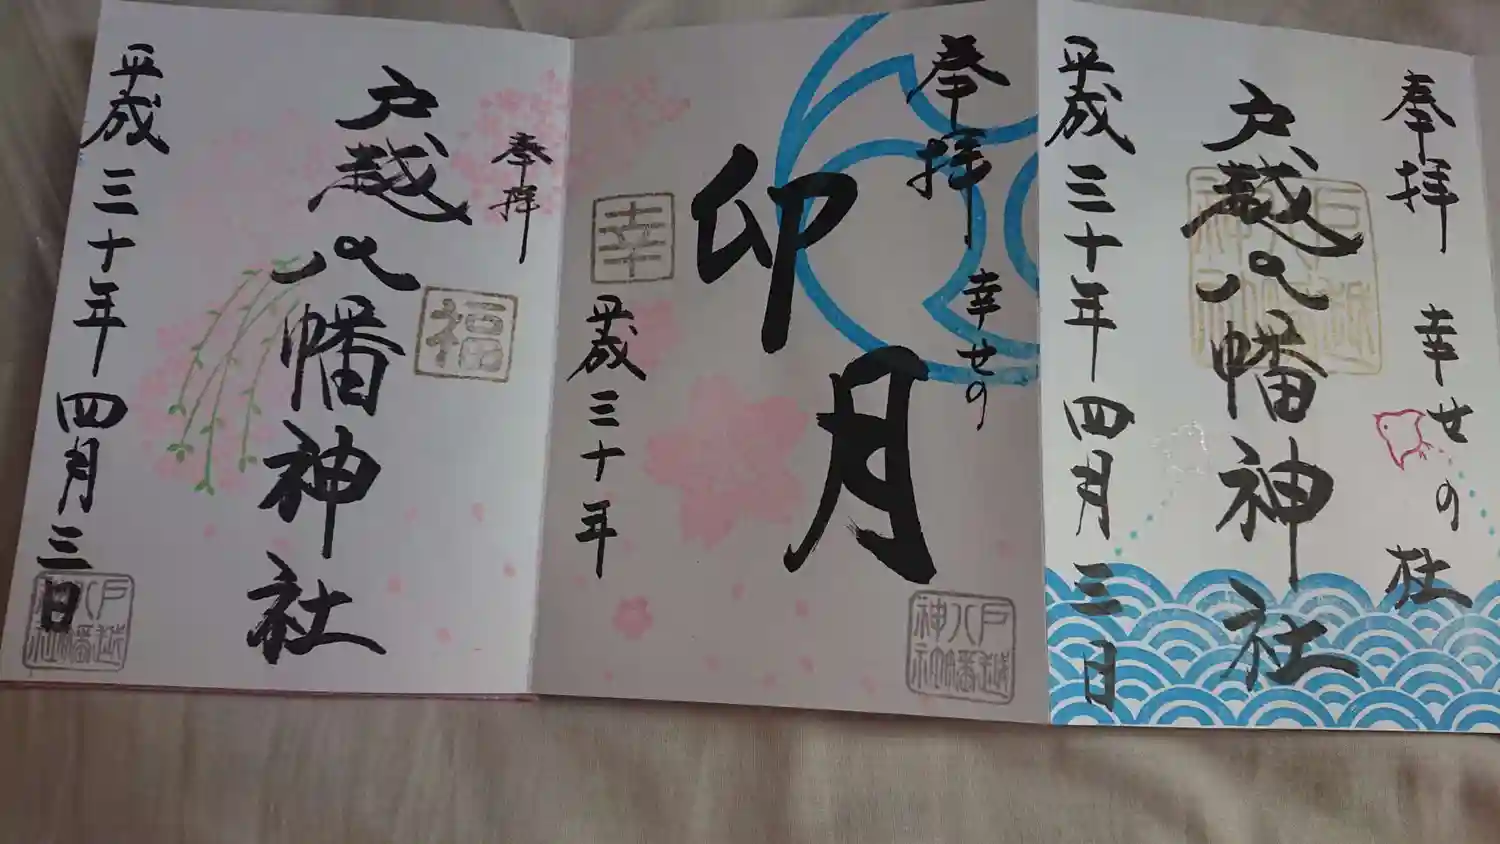 奉拝 幸せの社
戸越八幡神社
戸越八幡神社
平成三十年四月三日
奉拝 幸せの
卯月
幸
平成三十年
戸越八幡神社
奉拝
福
戸越八幡神社
平成三十年四月三日
戸越八幡神社